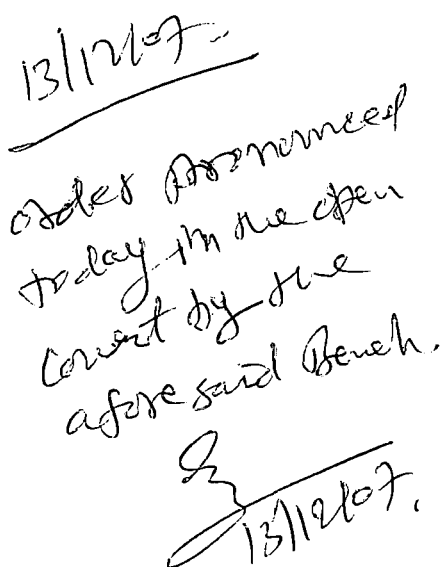 13/12/07.
order pronounced
today in the open
court by the
aforesaid Bench.
13/12/07.